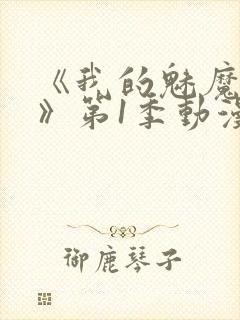 《我的魅魔
》第1季動漫
御鹿琴子